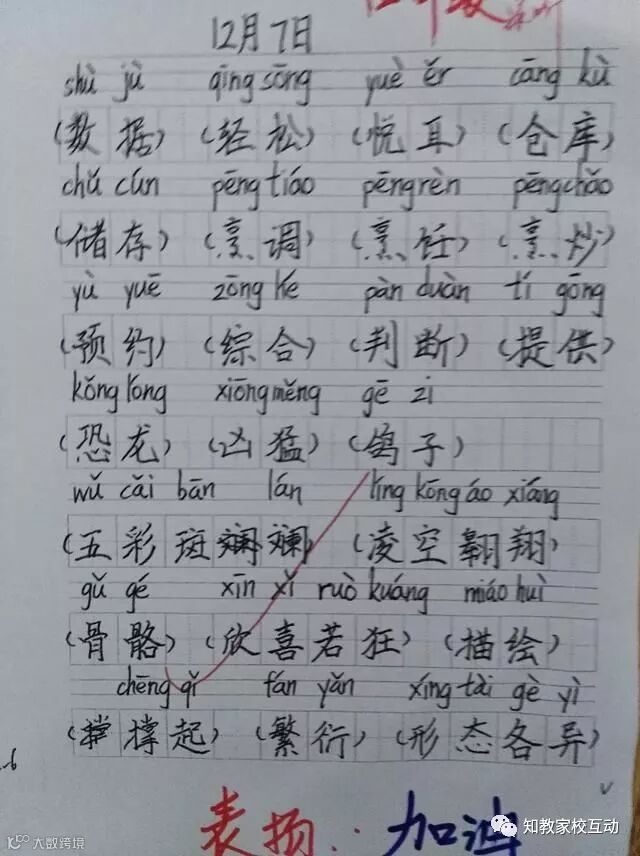 12月7日
shù jù qīng sōng yuè ěr cāng kù
(数据) (轻松) (悦耳) (仓库)
chǔ cún pēng tiáo pēng rèn pēng chǎo
(储存) (烹调) (烹饪) (烹炒)
yù yuē zōng hé pàn duàn tí gōng
(预约) (综合) (判断) (提供)
kǒng lóng xiōng měng gē zi
(恐龙) (凶猛) (鸽子)
wǔ cǎi bān lán líng kōng áo xiáng
(五彩斑斓) (凌空翱翔)
gǔ gé xīn xǐ ruò kuáng miáo huì
(骨骼) (欣喜若狂) (描绘)
chēng qǐ fán yǎn xíng tài gè yì
(撑起) (繁衍) (形态各异)
6
表扬: 加油
知教家校互动
大数跨境